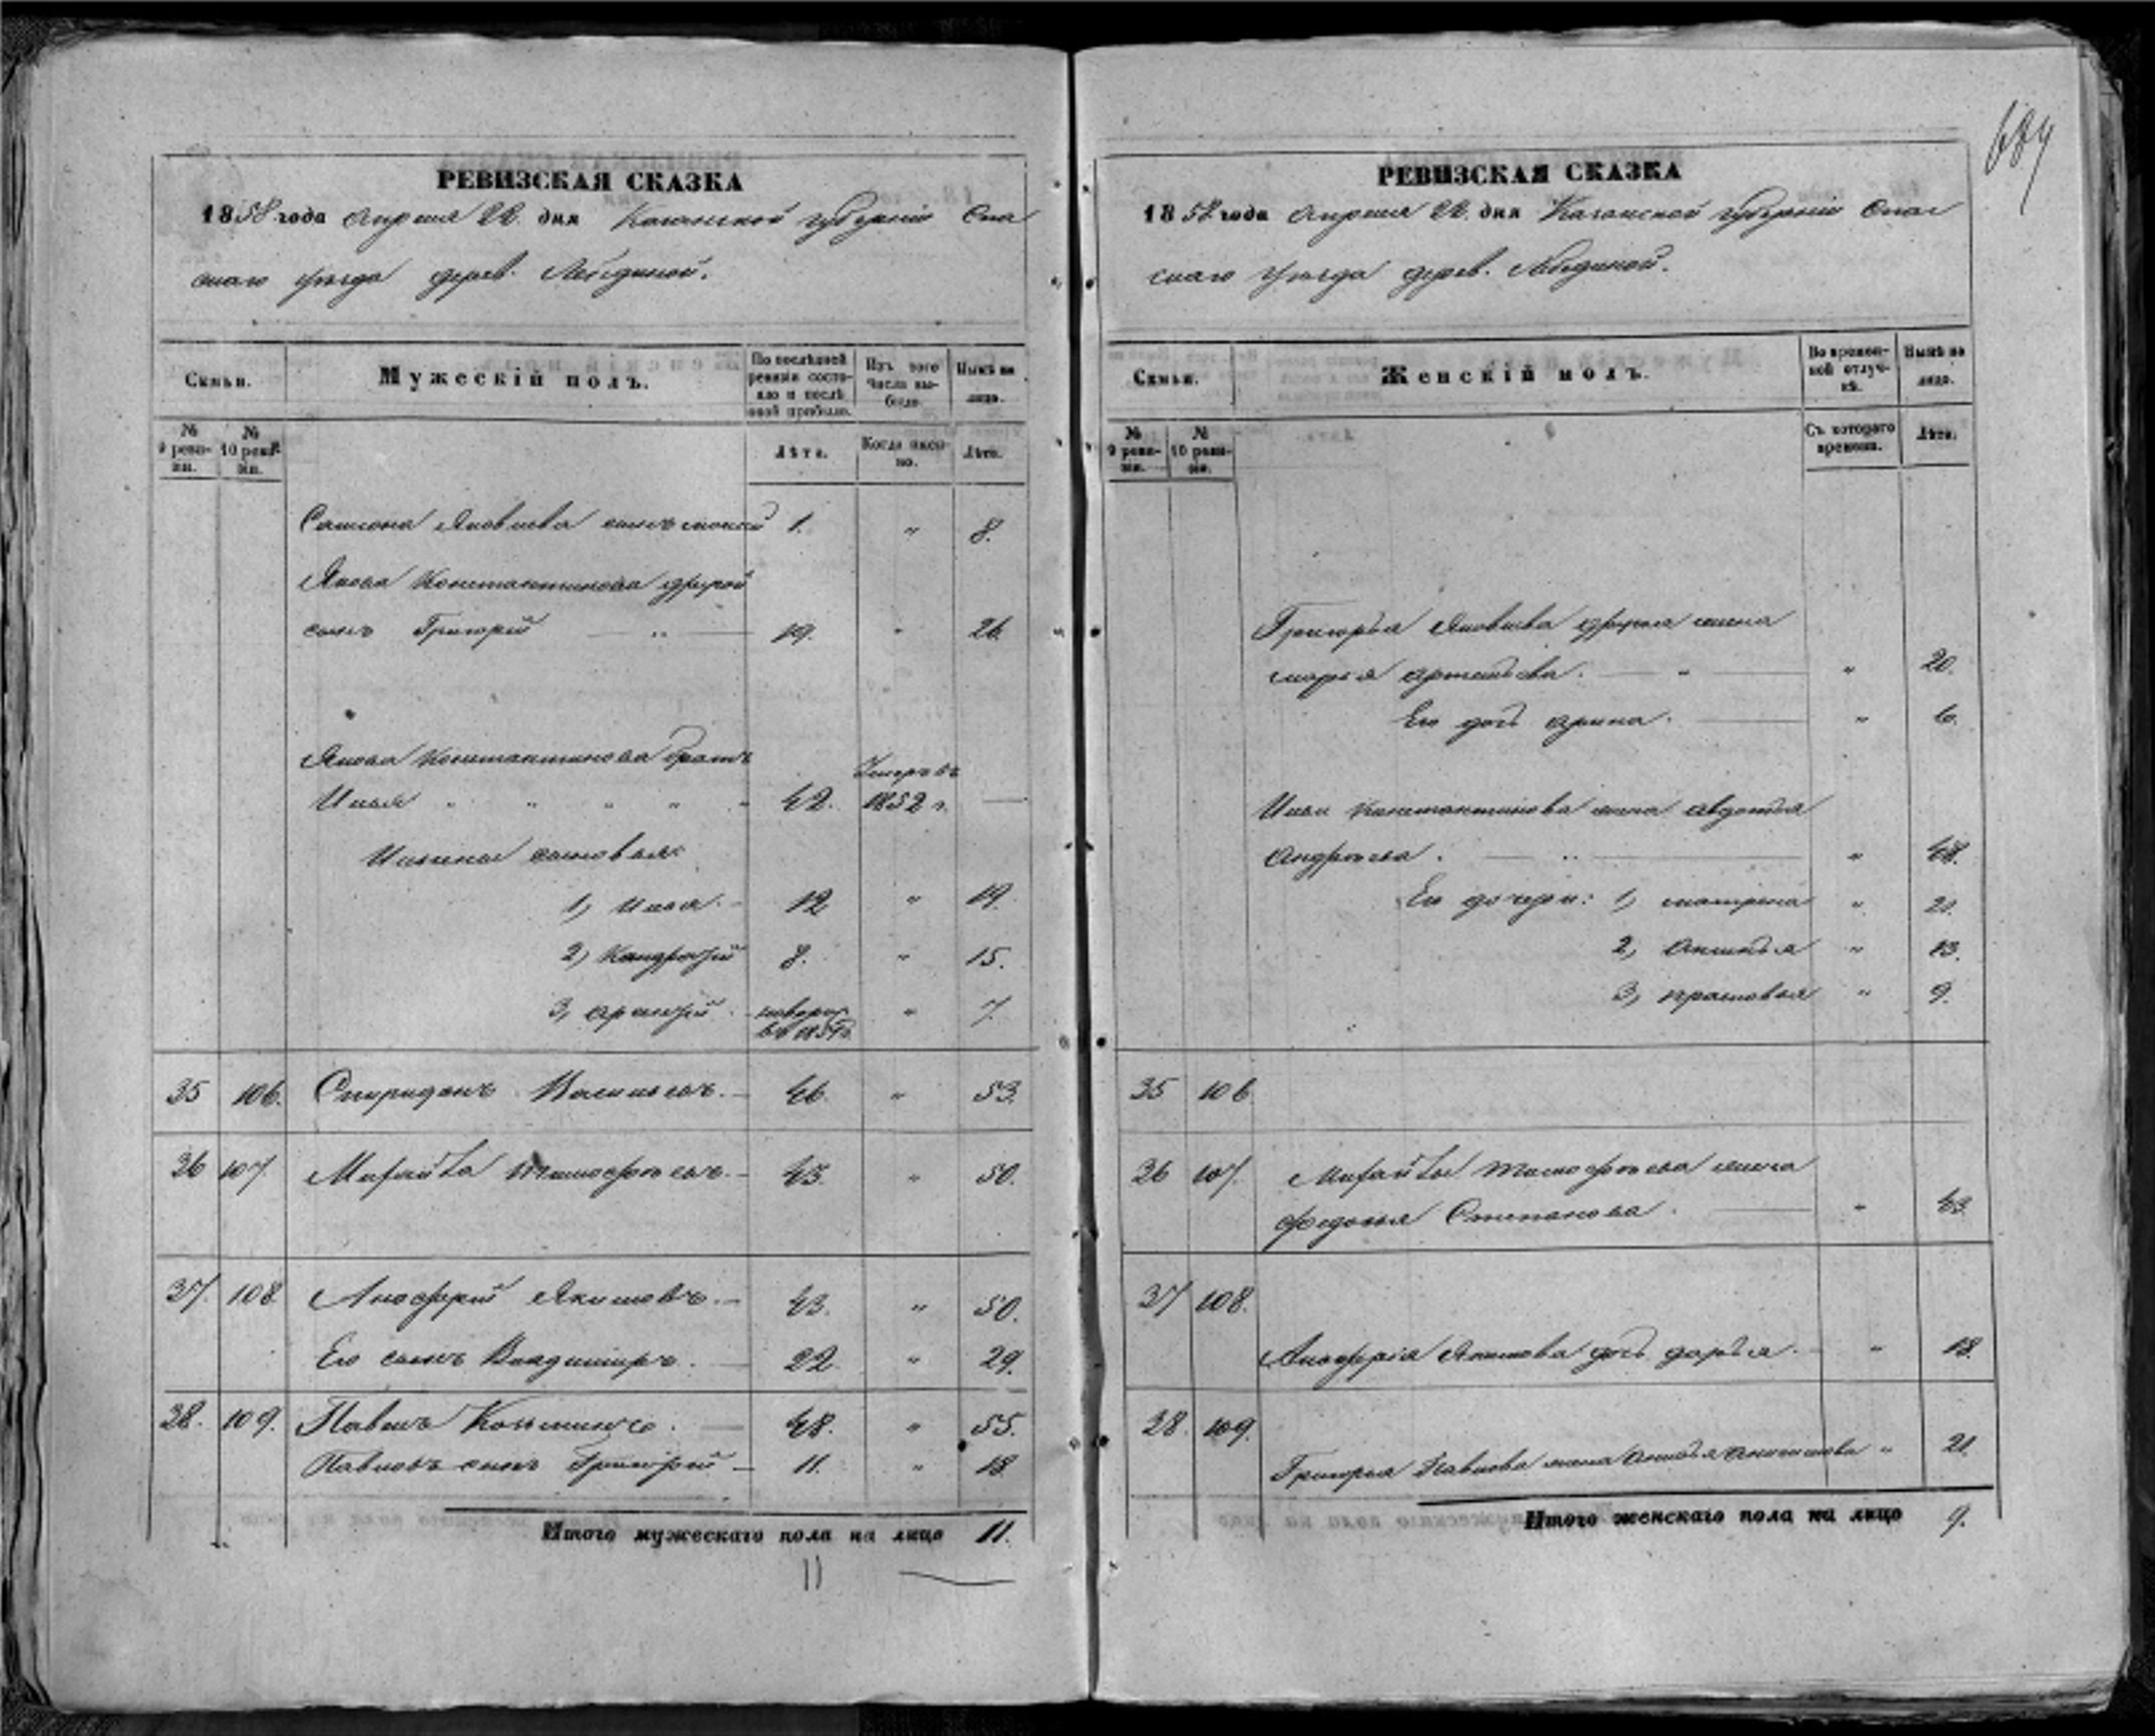 684
РЕВИЗСКАЯ СКАЗКА
1858 года Апреля 22 дня Казанской губернии Спа
скаго уѣзда дерев. Лебединой.
Семьи.
Мужескій полъ.
По послѣдней ревизіи состояло и послѣ оной прибыло.
Изъ того числа выбыло.
Нынѣ на лицо.
№ 9 ревизіи.
№ 10 ревизіи.
Лѣта.
Когда именно.
Лѣта.
Самсона Яковлева сынъ 1. " 8.
Якова Константинова другой
сынъ Григорій " 19. " 26.
Якова Константинова братъ
Илья " " " " " 42. Умеръ въ 1852 г. —
Ильины сыновья:
1, Илья. 12 " 19.
2, Кандратій 8. " 15.
3, новорож " 7.
35 106. Спиридонъ Васильевъ. 46. " 53.
36 107. Тимофѣевъ. 43. " 50.
37. 108 Анофрій Якимовъ. 43. " 50.
Его сынъ Владимиръ. 22. " 29.
38. 109. Павелъ Козьминъ. 48. " 55.
Павловъ сынъ Григорій 11. " 18.
Итого мужескаго пола на лицо 11.
11
РЕВИЗСКАЯ СКАЗКА
1858 года Апреля 22 дня Казанской губерніи Спас
скаго уѣзда дерев. Лебединой.
Семьи.
Женскій полъ.
Во временной отлучкѣ.
Нынѣ на лицо.
№ 9 ревизіи.
№ 10 ревизіи.
Съ котораго времени.
Лѣта.
Григорья Яковлева жена
марья артемьева. " " 20.
Ею дочь арина. " 6.
Ильи Константинова жена авдотья
Андреева. " " 48.
Ею дочери: 1, матрена " 21.
2, " 13.
3, прасковья " 9.
35 106
36 107. Тимофѣева жена
федосья Степанова. " 43
37 108.
Анофрія Якимова дочь дарья. " 18.
38. 109.
Григорья Павлова жена " 21.
Итого женскаго пола на лицо 9.